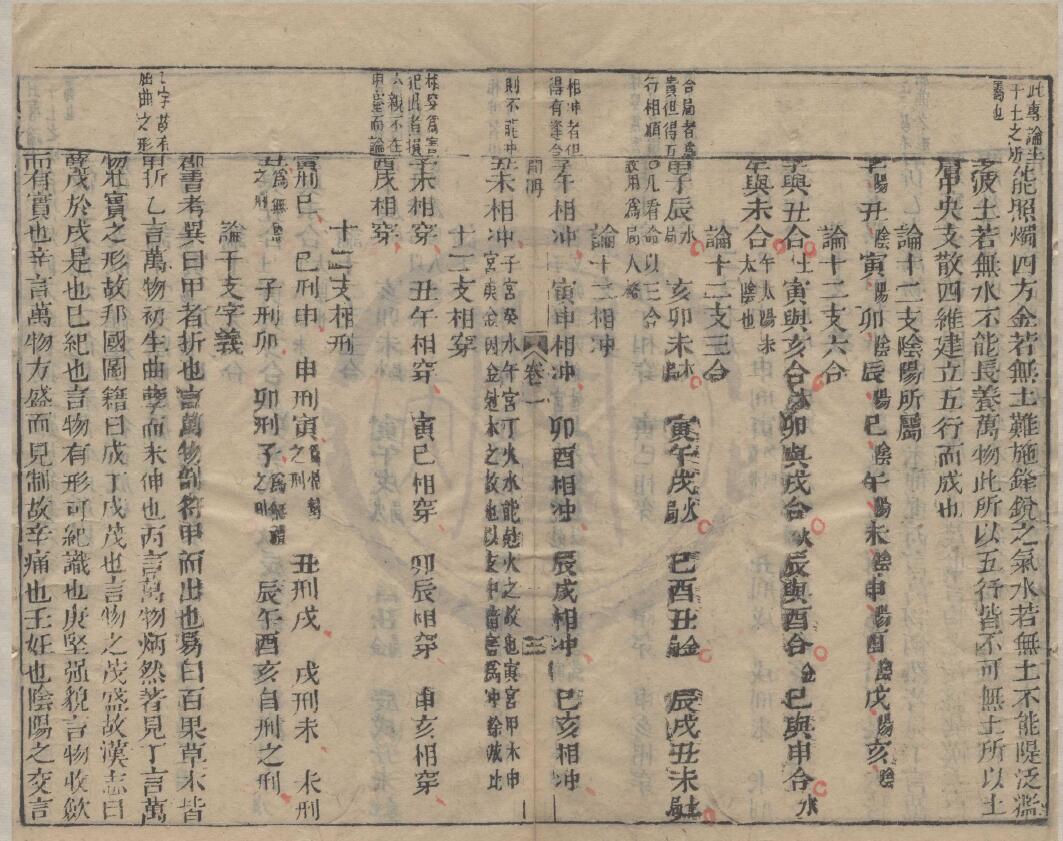 此專論土
于土之所
屬也
能照燭四方金若無土難施鋒銳之氣水若無土不能隄泛濫
之波土若無水不能長養萬物此所以五行皆不可無土所以土
居中央支散四維建立五行而成也
論十二支陰陽所屬
子陽丑陰寅陽卯陰辰陽巳陰午陽未陰申陽酉陰戌陽亥陰
論十二支六合
子與丑合土寅與亥合木卯與戌合火辰與酉合金巳與申合水
午與未合午太陽未太陰也
論十二支三合
合局者為
貴但得五
行相順
申子辰水局 亥卯未木局 寅午戌火局 巳酉丑金局 辰戌丑未土局
○凡看命以三合
敢用為局人緣
論十二相冲
相冲者但
得有逢合
則不能冲
子午相冲 寅申相冲 卯酉相冲 辰戌相冲 巳亥相冲
卷一 三
丑未相冲子宮癸水午宮丁火水能尅火之故也寅宮甲木申
宮庚金因金尅木之故也以支中藏害為冲餘放此
十二支相穿
相穿為害
犯此者損
六親不在
中堂而論
子未相穿 丑午相穿 寅巳相穿 卯辰相穿 申亥相穿
酉戌相穿
十二支相刑
寅刑巳 巳刑申 申刑寅為恃勢之刑 丑刑戌 戌刑未 未刑
丑為無恩之刑 子刑卯 卯刑子為無禮之刑 辰午酉亥自刑之刑
論干支字義
乙字故有
屈曲之形
羣書考異曰甲者折也言萬物剖符甲而出也易曰百果草木皆
甲折乙言萬物初生曲孽而未伸也丙言萬物炳然著見丁言萬
物壯實之形故邦國圖籍曰成丁戊茂也言物之茂盛故漢志曰
豐茂於戊是也巳紀也言物有形可紀識也庚堅强貌言物收斂
而有實也辛言萬物方盛而見制故辛痛也壬妊也陰陽之交言